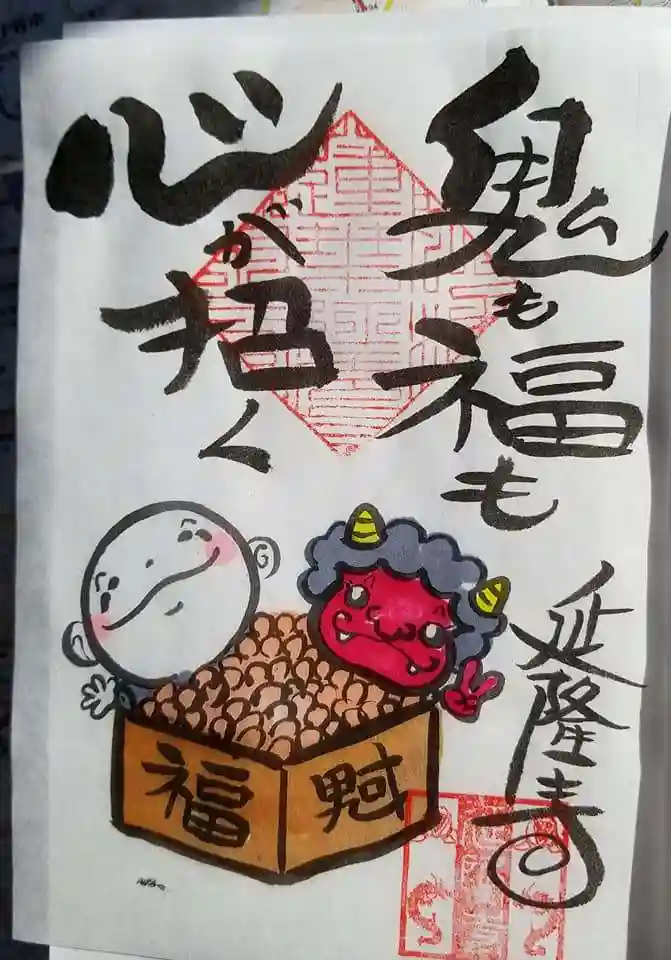 鬼も福も
心が招く
延隆寺
福